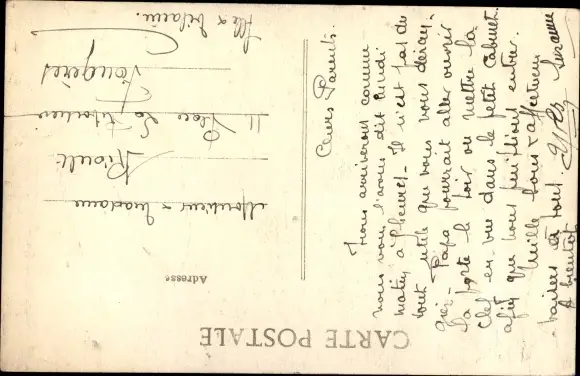 CARTE POSTALE
Adresse
Monsieur & Madame
Rioult
11 Place La
Fougères
Ille & Vilaine.
Chers Parents.
Nous arriverons comme
nous vous l'avons dit lundi
matin à 9 heures. Il n'est pas du
tout utile que vous vous déran-
giez. Papa pourrait aller ouvrir
la porte le soir ou mettre la
clef en vue dans le petit cabinet
afin que nous puissions entrer.
Mille bons & affectueux
baisers à tous.
A bientôt
Suzanne